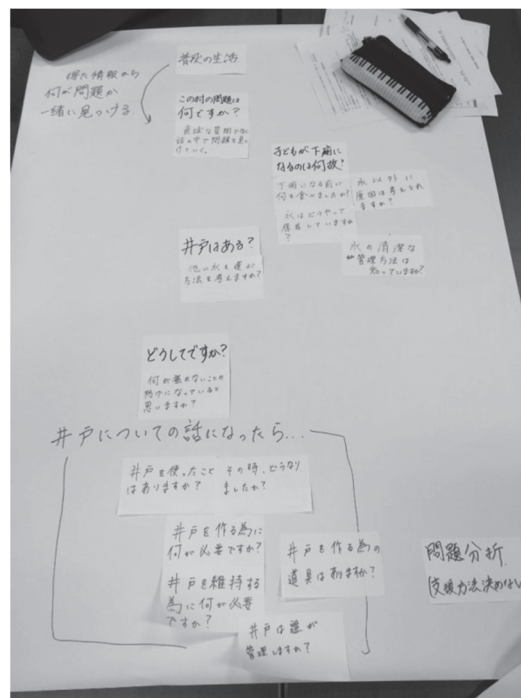 得た情報から
何が問題か
一緒に見つける
普段の生活
この村の問題は
何ですか?
直球な質問でなく
話の中で問題を見つ
けていく。
子どもが下痢に
なるのは何故?
下痢になる前に
何を食べましたか?
水以外に
原因は考えられ
ますか?
水はどうやって
していますか
?
水の清潔な
管理方法は
知っていますか?
井戸はある?
水を運ぶ
方法を考えますか?
どうしてですか?
何が
になっていると
思いますか?
井戸についての話になったら...
井戸を使ったこと
はありますか?
その時、どうなり
ましたか?
井戸を作る為に
何が必要ですか?
井戸を作る為の
道具はありますか?
井戸を維持する
為に何が必要
ですか?
井戸は誰が
管理しますか?
問題分析
支援方法決めない